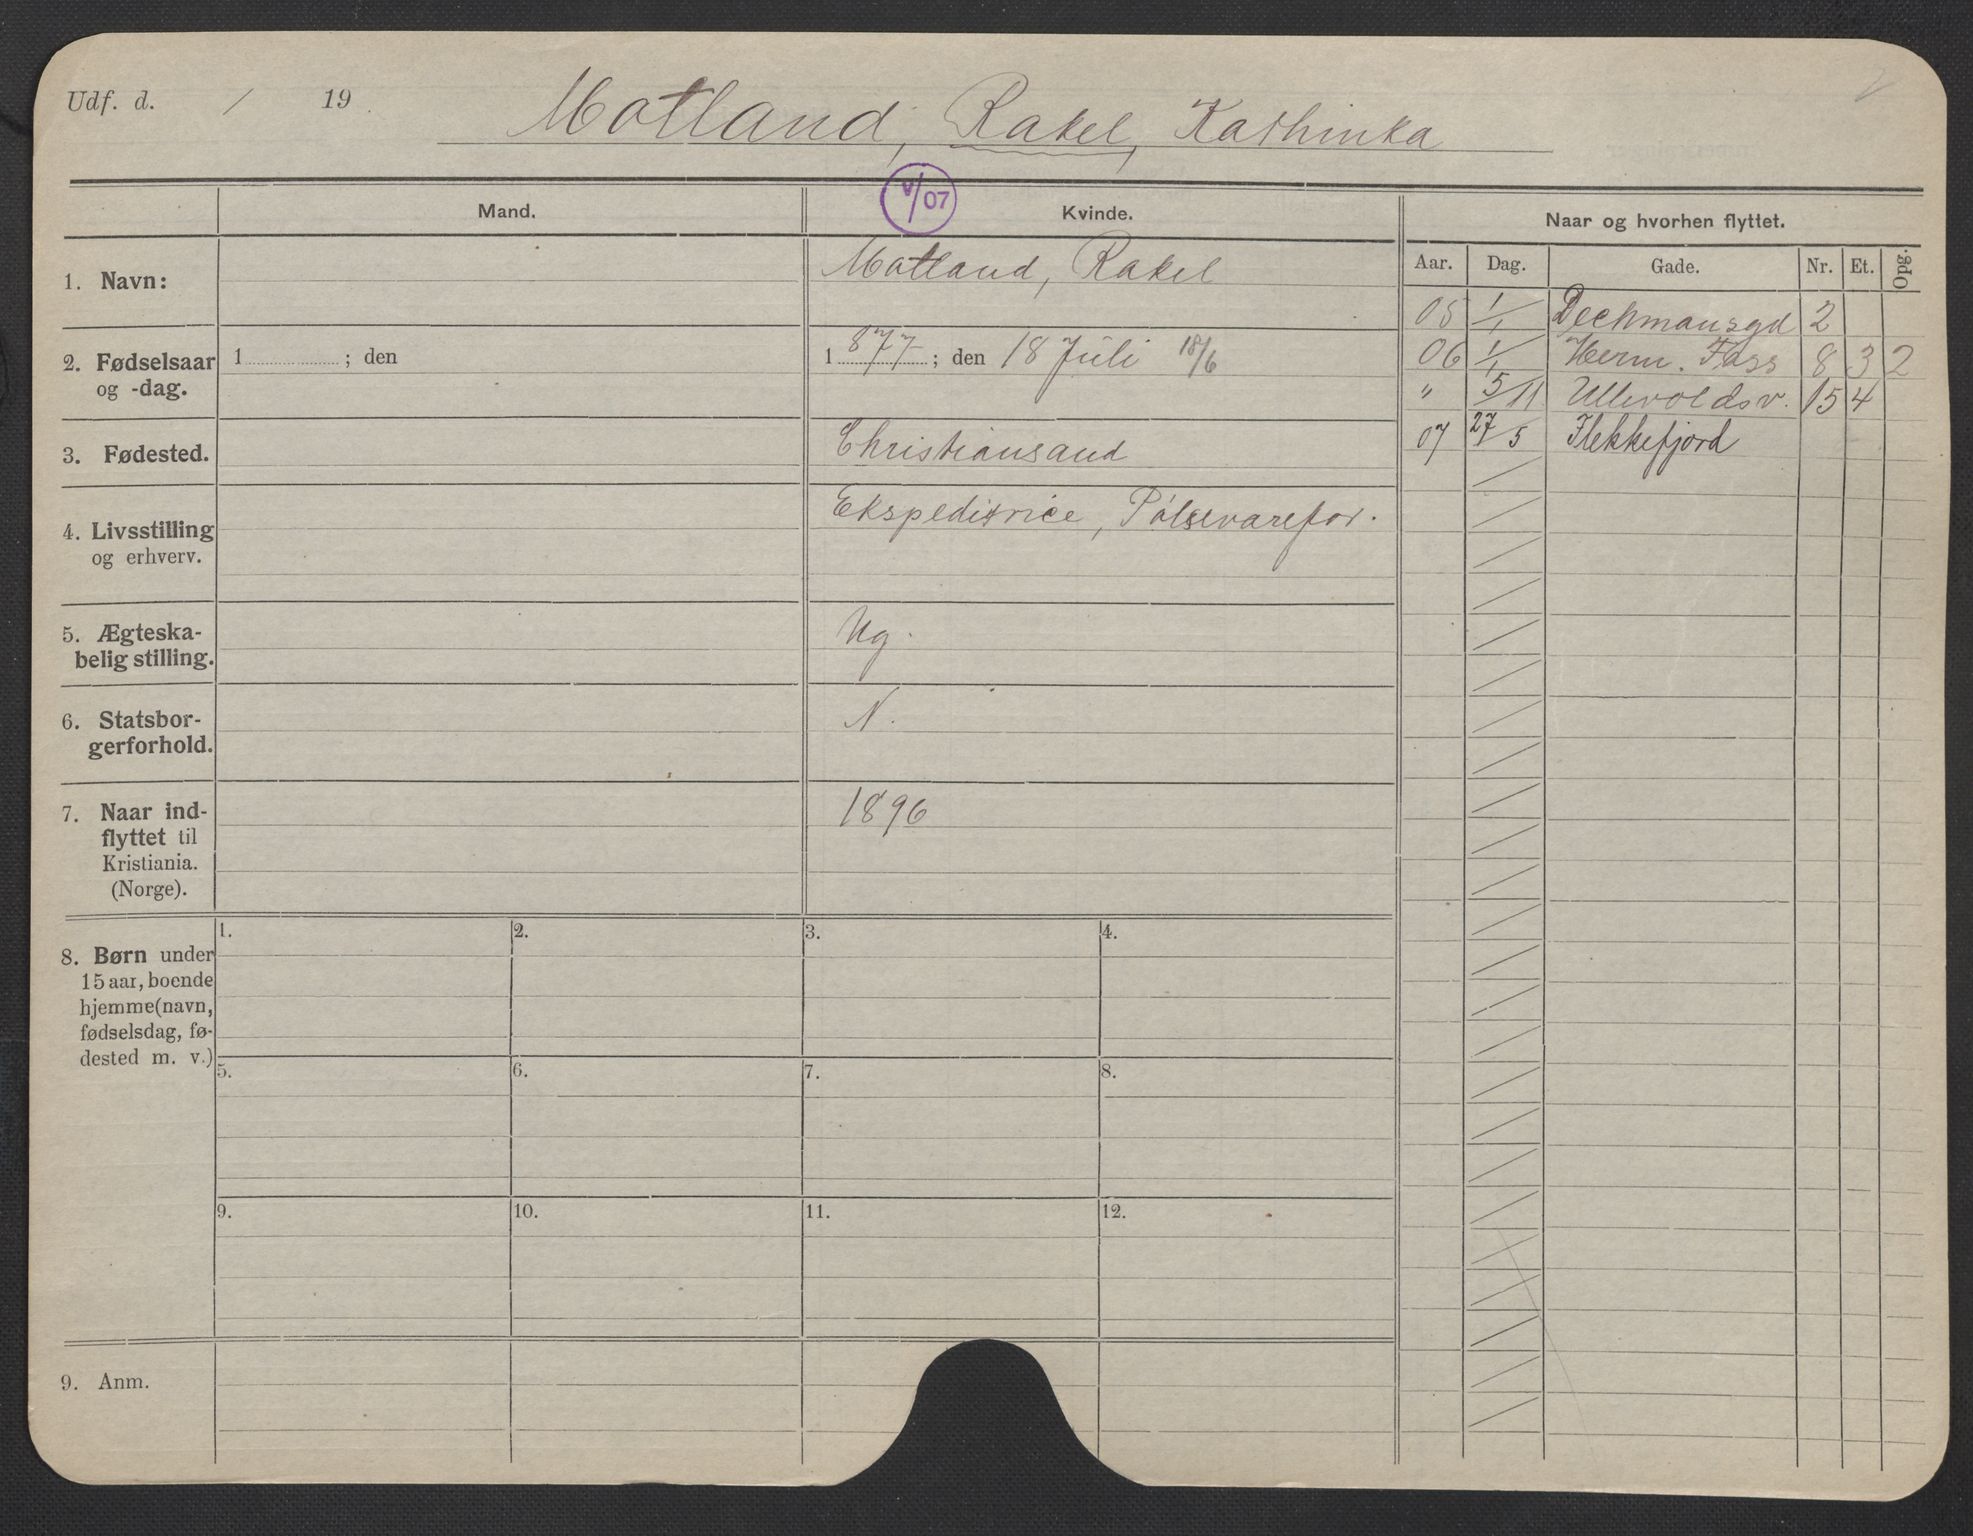 Udf. d. / 19 .
Motland, Rakel, Kathinka
V/07
Mand.
Kvinde.
Naar og hvorhen flyttet.
Aar. Dag. Gade. Nr. Et. Opg.
1. Navn:
Motland, Rakel
2. Fødselsaar
og -dag.
1 ; den
1877; den 18 Juli 18/6
3. Fødested.
Christiansand
4. Livsstilling
og erhverv.
Ekspeditrice, Pølsevarefor.
5. Ægteska-
belig stilling.
Ug.
6. Statsbor-
gerforhold.
N.
7. Naar ind-
flyttet til
Kristiania.
(Norge).
1896
05 1/1 Deichmansgd 2
06 1/1 Herm. Foss 8 3 2
" 5/11 Ullevoldsv. 15 4
07 27/5 Flekkefjord
8. Børn under
15 aar, boende
hjemme (navn,
fødselsdag, fø-
dested m. v.)
1. 2. 3. 4.
5. 6. 7. 8.
9. 10. 11. 12.
9. Anm.